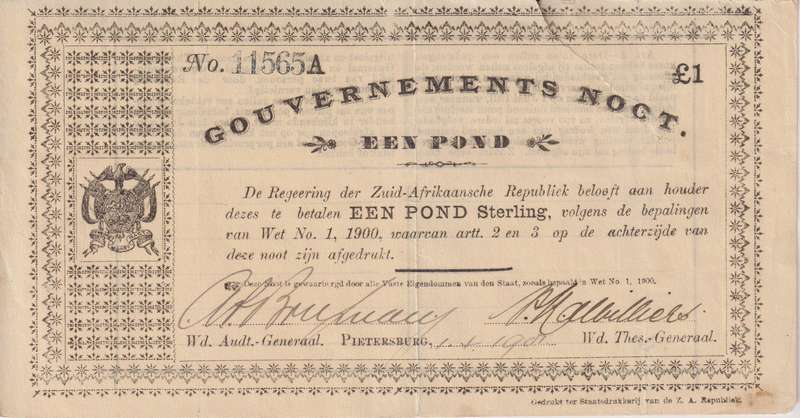 No. 11565A
£1
GOUVERNEMENTS NOOT.
EEN POND
De Regeering der Zuid-Afrikaansche Republiek belooft aan houder
dezes te betalen EEN POND Sterling, volgens de bepalingen
van Wet No. 1, 1900, waarvan artt. 2 en 3 op de achterzijde van
deze noot zijn afgedrukt.
Deze Noot is gewaarborgd door alle Vaste Eigendommen van den Staat, zooals bepaald in Wet No. 1, 1900.
Wd. Audt.-Generaal. PIETERSBURG, 1 1901 Wd. Thes.-Generaal.
Gedrukt ter Staatsdrukkerij van de Z. A. Republiek.